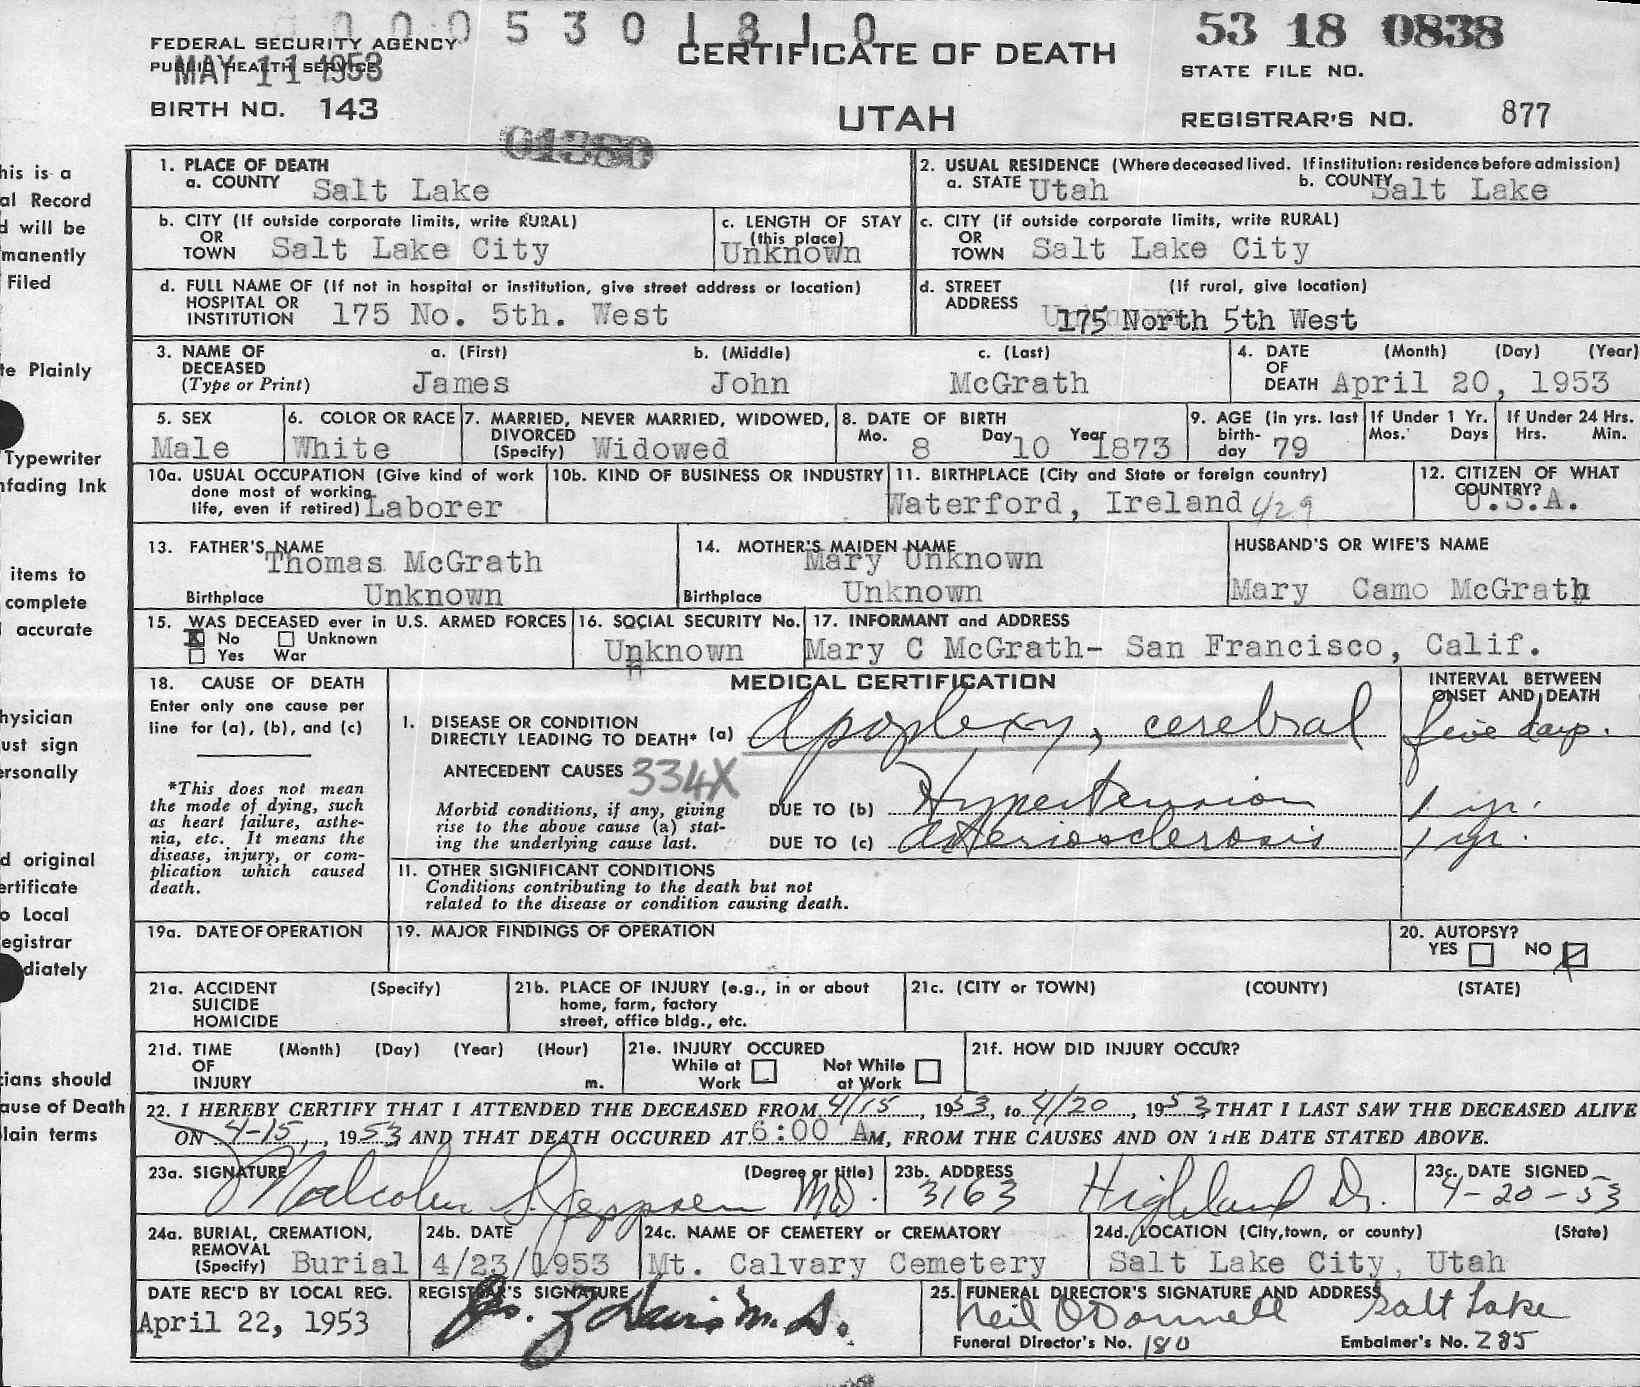 0 0 0 5 3 0 1 8 1 0
53 18 0838
FEDERAL SECURITY AGENCY
PUBLIC HEALTH SERVICE
MAY 11 1953
CERTIFICATE OF DEATH
STATE FILE NO.
BIRTH NO. 143
UTAH
REGISTRAR'S NO. 877
01380
his is a
al Record
d will be
manently
Filed
te Plainly
Typewriter
nfading Ink
items to
complete
accurate
hysician
ust sign
ersonally
d original
ertificate
o Local
egistrar
diately
cians should
ause of Death
lain terms
1. PLACE OF DEATH
a. COUNTY Salt Lake
2. USUAL RESIDENCE (Where deceased lived. If institution: residence before admission)
a. STATE Utah b. COUNTY Salt Lake
b. CITY (If outside corporate limits, write RURAL)
OR
TOWN Salt Lake City
c. LENGTH OF STAY
(this place)
Unknown
c. CITY (if outside corporate limits, write RURAL)
OR
TOWN Salt Lake City
d. FULL NAME OF (If not in hospital or institution, give street address or location)
HOSPITAL OR
INSTITUTION 175 No. 5th. West
d. STREET (If rural, give location)
ADDRESS 175 North 5th West
3. NAME OF a. (First) b. (Middle) c. (Last)
DECEASED
(Type or Print) James John McGrath
4. DATE (Month) (Day) (Year)
OF
DEATH April 20, 1953
5. SEX
Male
6. COLOR OR RACE
White
7. MARRIED, NEVER MARRIED, WIDOWED,
DIVORCED
(Specify) Widowed
8. DATE OF BIRTH
Mo. 8 Day 10 Year 1873
9. AGE (in yrs. last
birth-
day 79
If Under 1 Yr.
Mos. Days
If Under 24 Hrs.
Hrs. Min.
10a. USUAL OCCUPATION (Give kind of work
done most of working
life, even if retired) Laborer
10b. KIND OF BUSINESS OR INDUSTRY
11. BIRTHPLACE (City and State or foreign country)
Waterford, Ireland 4/29
12. CITIZEN OF WHAT
COUNTRY?
U.S.A.
13. FATHER'S NAME
Thomas McGrath
Birthplace Unknown
14. MOTHER'S MAIDEN NAME
Mary Unknown
Birthplace Unknown
HUSBAND'S OR WIFE'S NAME
Mary Camo McGrath
15. WAS DECEASED ever in U.S. ARMED FORCES
X No Unknown
Yes War
16. SOCIAL SECURITY No.
Unknown
17. INFORMANT and ADDRESS
Mary C McGrath- San Francisco, Calif.
18. CAUSE OF DEATH
Enter only one cause per
line for (a), (b), and (c)
*This does not mean
the mode of dying, such
as heart failure, asthe-
nia, etc. It means the
disease, injury, or com-
plication which caused
death.
MEDICAL CERTIFICATION
INTERVAL BETWEEN
ONSET AND DEATH
I. DISEASE OR CONDITION
DIRECTLY LEADING TO DEATH* (a) Apoplexy, cerebral five days.
ANTECEDENT CAUSES 334X
Morbid conditions, if any, giving
rise to the above cause (a) stat-
ing the underlying cause last.
DUE TO (b) Hypertension 1 yr.
DUE TO (c) arteriosclerosis 1 yr.
11. OTHER SIGNIFICANT CONDITIONS
Conditions contributing to the death but not
related to the disease or condition causing death.
19a. DATE OF OPERATION
19. MAJOR FINDINGS OF OPERATION
20. AUTOPSY?
YES NO X
21a. ACCIDENT (Specify)
SUICIDE
HOMICIDE
21b. PLACE OF INJURY (e.g., in or about
home, farm, factory
street, office bldg., etc.
21c. (CITY or TOWN) (COUNTY) (STATE)
21d. TIME (Month) (Day) (Year) (Hour)
OF
INJURY m.
21e. INJURY OCCURED
While at Not While
Work at Work
21f. HOW DID INJURY OCCUR?
22. I HEREBY CERTIFY THAT I ATTENDED THE DECEASED FROM 4/15, 1953, to 4/20, 1953 THAT I LAST SAW THE DECEASED ALIVE
ON 4-15, 1953 AND THAT DEATH OCCURED AT 6:00 AM, FROM THE CAUSES AND ON THE DATE STATED ABOVE.
23a. SIGNATURE (Degree or title)
Malcolm S. Jeppsen MD.
23b. ADDRESS
3163 Highland Dr.
23c. DATE SIGNED
4-20-53
24a. BURIAL, CREMATION,
REMOVAL
(Specify) Burial
24b. DATE
4/23/1953
24c. NAME OF CEMETERY or CREMATORY
Mt. Calvary Cemetery
24d. LOCATION (City, town, or county) (State)
Salt Lake City, Utah
DATE REC'D BY LOCAL REG.
April 22, 1953
REGISTRAR'S SIGNATURE
M.D.
25. FUNERAL DIRECTOR'S SIGNATURE AND ADDRESS
Neil O'Donnell Salt Lake
Funeral Director's No. 180 Embalmer's No. 285